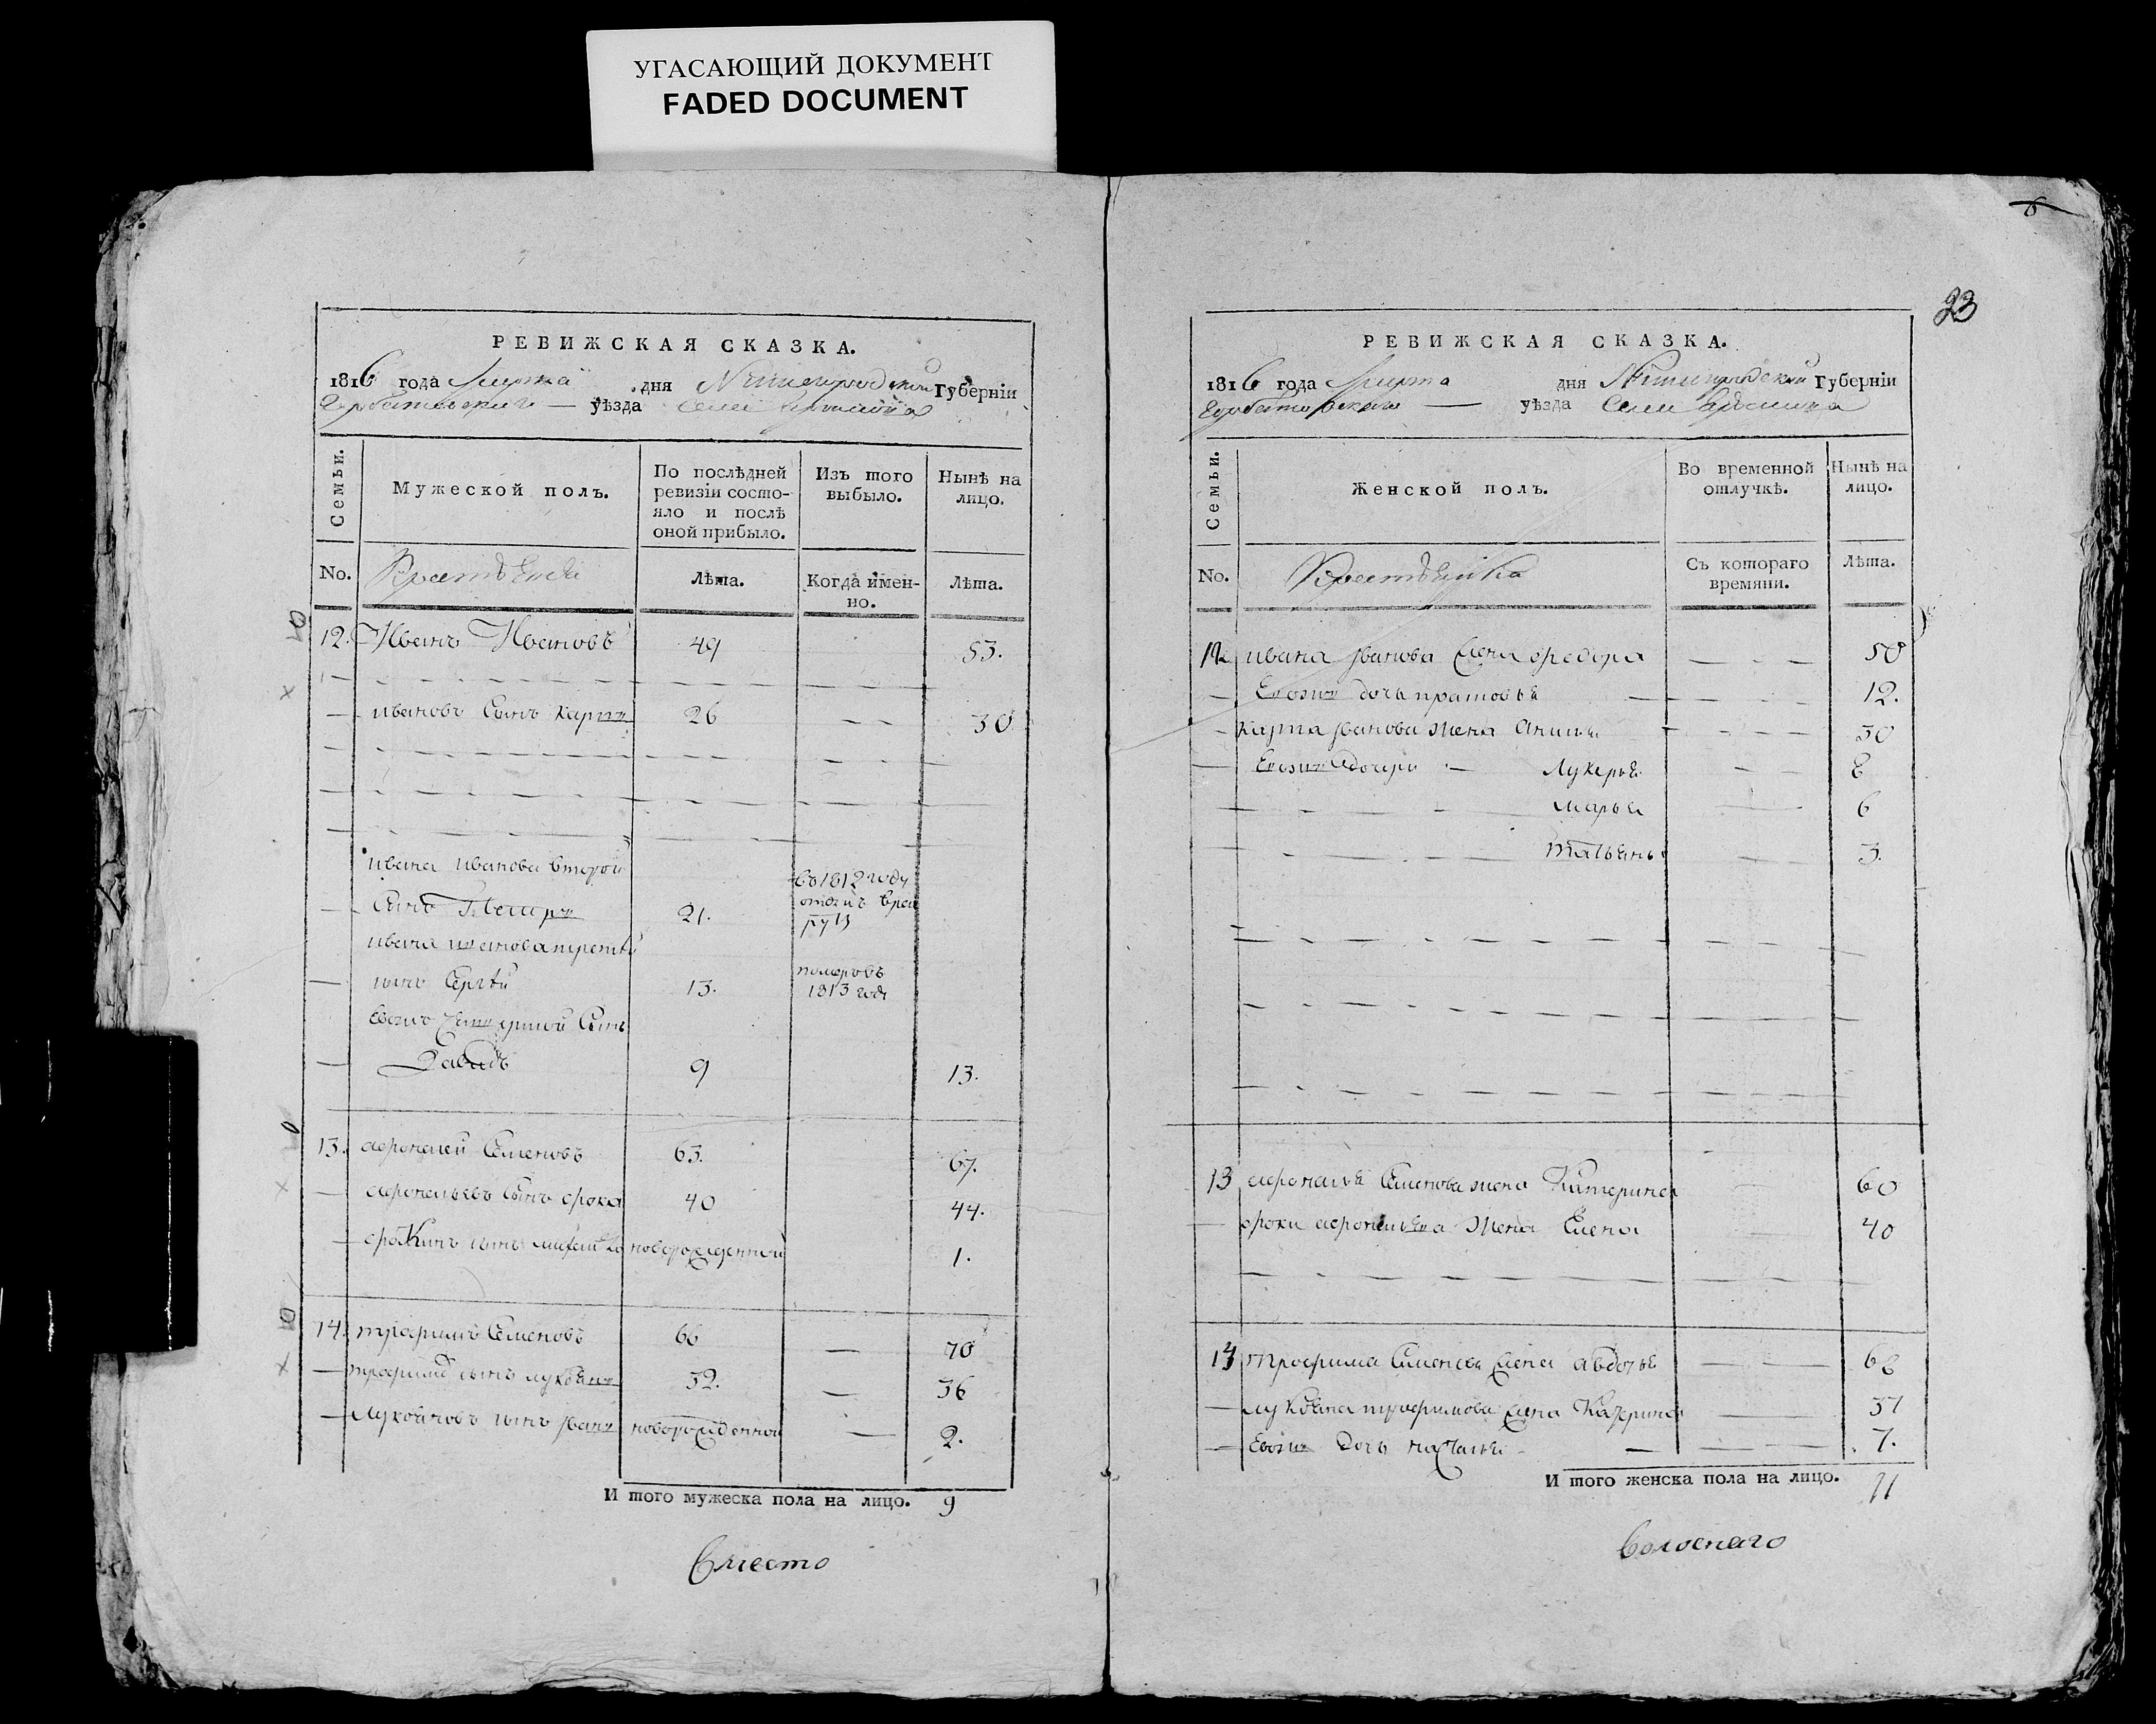 УГАСАЮЩИЙ ДОКУМЕНТ
FADED DOCUMENT
РЕВИЖСКАЯ СКАЗКА.
1816 года Марта дня Нижегородской Губерніи
Горбатовскаго — уѣзда Села
Семьи.
Мужеской полъ.
По послѣдней ревизіи состояло и послѣ оной прибыло.
Изъ того выбыло.
Нынѣ на лицо.
No.
Лѣта.
Когда именно.
Лѣта.
12. Иванъ Ивановъ 49 53.
ивановъ Сынъ карпъ 26 30
ивана иванова второй
Сынъ Петръ 21. въ 1812 году отданъ в рекруты
ивана иванова третій
сынъ Сергѣй 13. померъ въ 1813 годе
Евожъ четвертой Сынъ
Давидъ 9 13.
13. афонасей Семеновъ 63. 67.
афонасьевъ Сынъ фока 40 44.
фокинъ сынъ новорожденной 1.
14. трофимъ Семеновъ 66 — 70
трофимовъ сынъ лукоянъ 32. — 36
Лукояновъ сынъ Иванъ новорожденной — 2.
И того мужеска пола на лицо. 9
Вместо
23
РЕВИЖСКАЯ СКАЗКА.
1816 года Марта дня Нижегородской Губерніи
Горбатовскаго — уѣзда Села
Семьи.
Женской полъ.
Во временной отлучкѣ.
Нынѣ на лицо.
No.
Съ котораго времяни.
Лѣта.
12 ивана Иванова жена федора 50
Евожъ дочь 12.
карпа Иванова жена Анисья 30
Евожъ дочери — Лукерья 8
марья 6
татьяна 3.
13 афонасья Семенова жена Катерина 60
фоки афонасьева жена Елена 40
14 трофима Семенова жена авдотья 68
лукояна трофимова жена Катерина 37
Евожъ дочь наталья — 7.
И того женска пола на лицо. 11